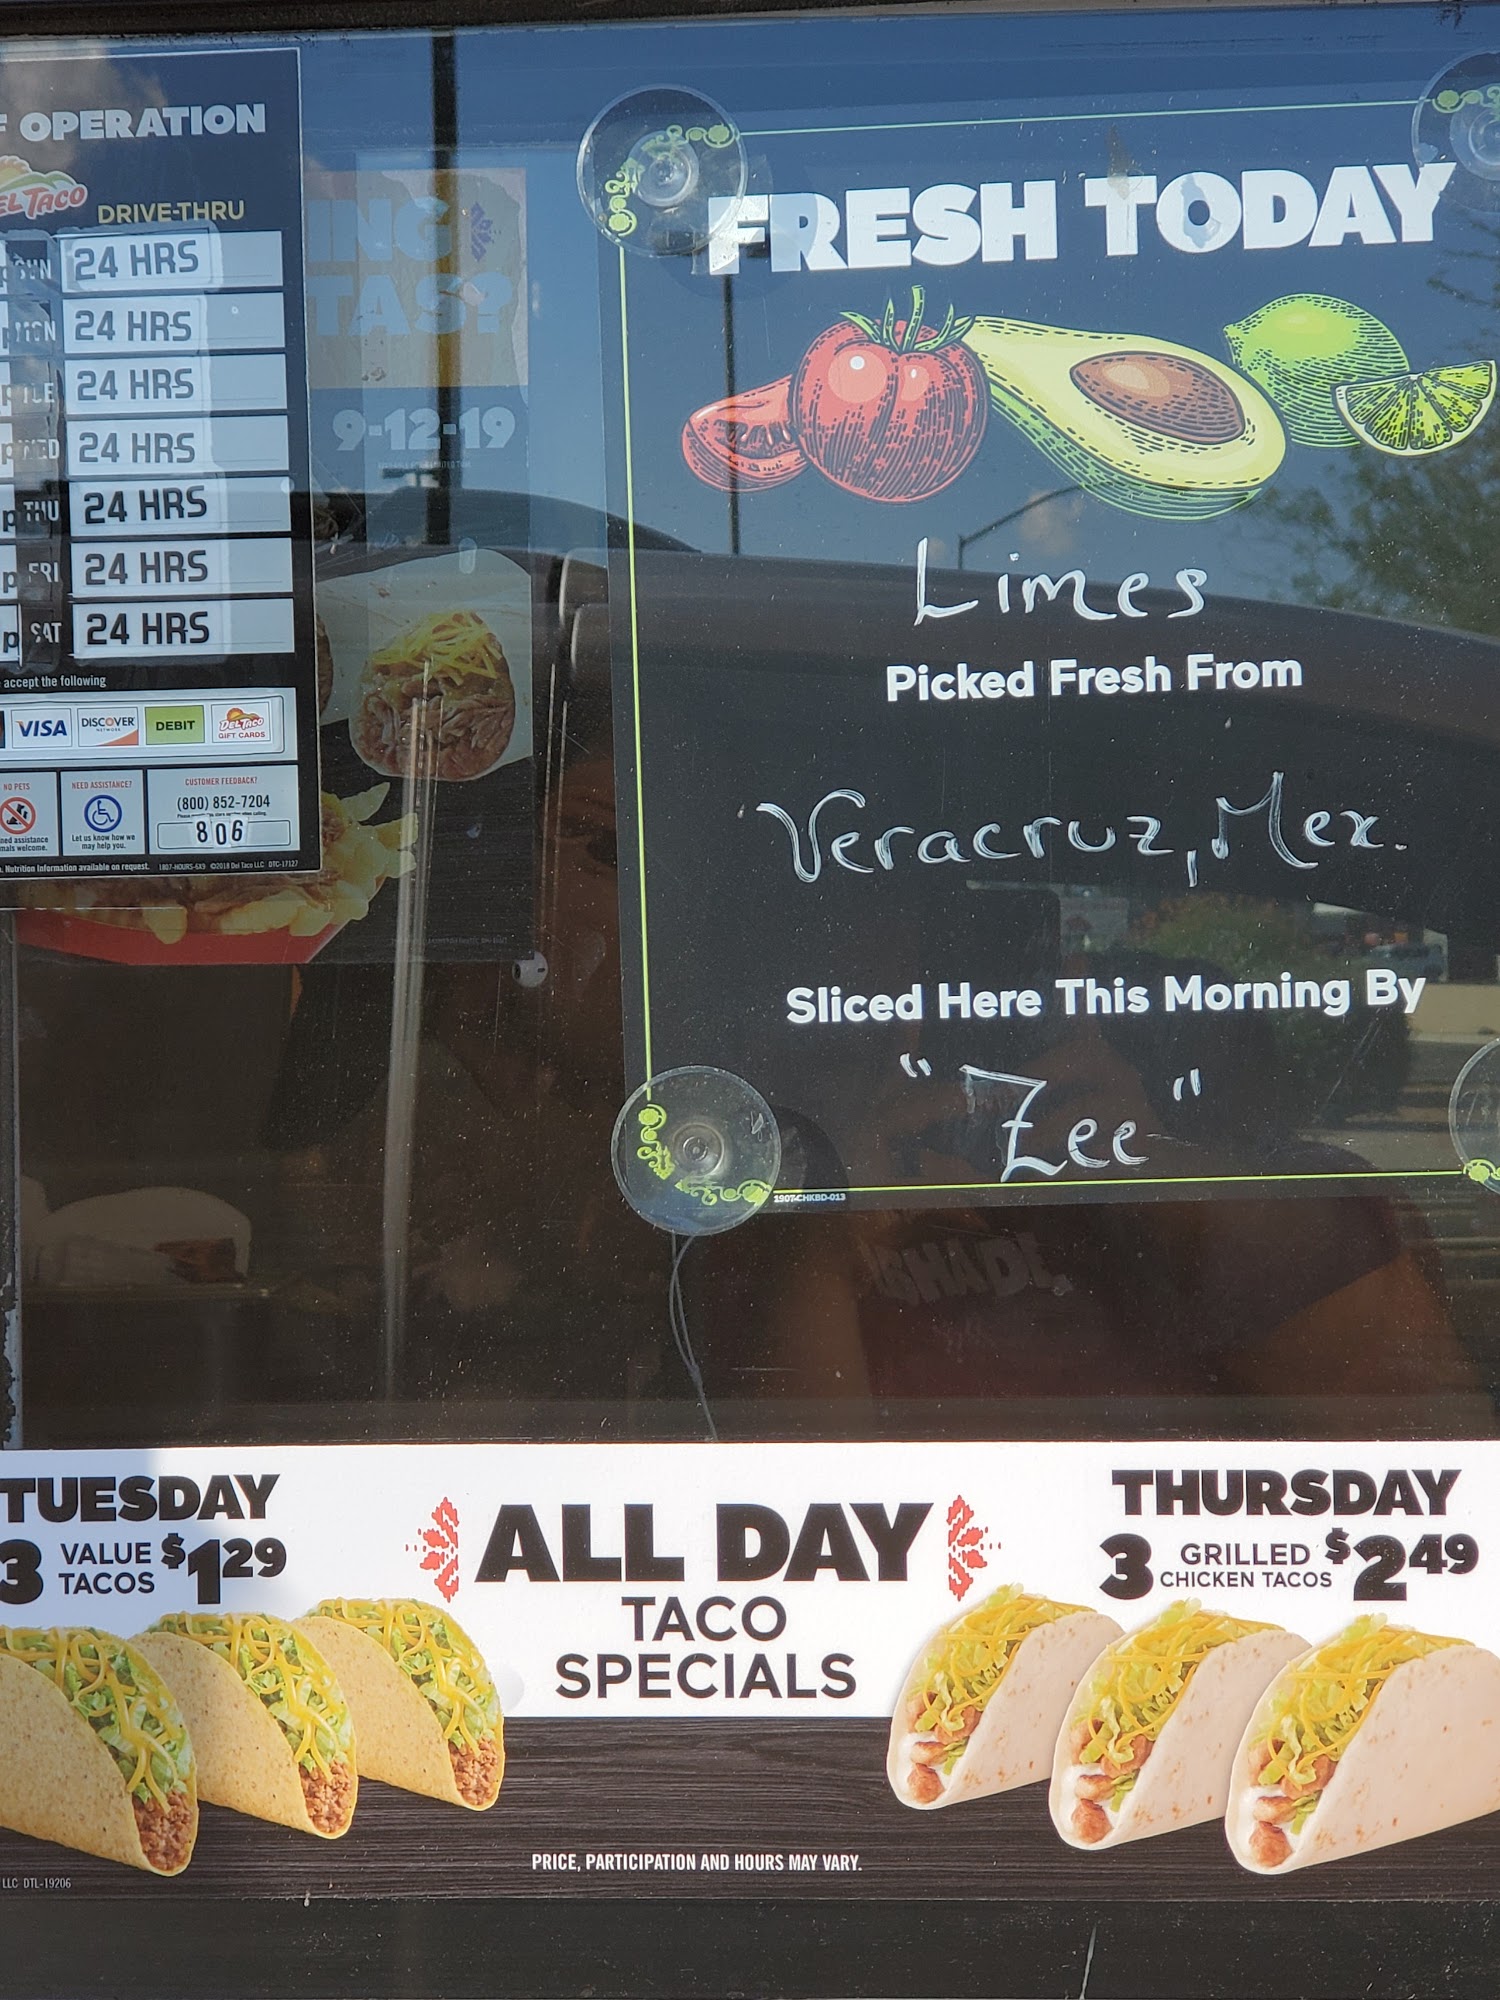 OPERATION
DEL TACO
DRIVE-THRU
24 HRS
MON 24 HRS
24 HRS
WED 24 HRS
THU 24 HRS
FRI 24 HRS
SAT 24 HRS
accept the following
VISA DISCOVER NETWORK DEBIT DEL TACO GIFT CARDS
NO PETS
NEED ASSISTANCE?
Let us know how we
may help you.
CUSTOMER FEEDBACK?
(800) 852-7204
806
Nutrition Information available on request. 1807-HOURS-6X9 ©2018 Del Taco LLC DTC-17127
ING
TAS?
9-12-19
FRESH TODAY
Limes
Picked Fresh From
Veracruz, Mex.
Sliced Here This Morning By
"Zee"
1907-CHKBD-013
TUESDAY
3 VALUE TACOS $1.29
ALL DAY
TACO
SPECIALS
THURSDAY
3 GRILLED CHICKEN TACOS $2.49
PRICE, PARTICIPATION AND HOURS MAY VARY.
LLC DTL-19206